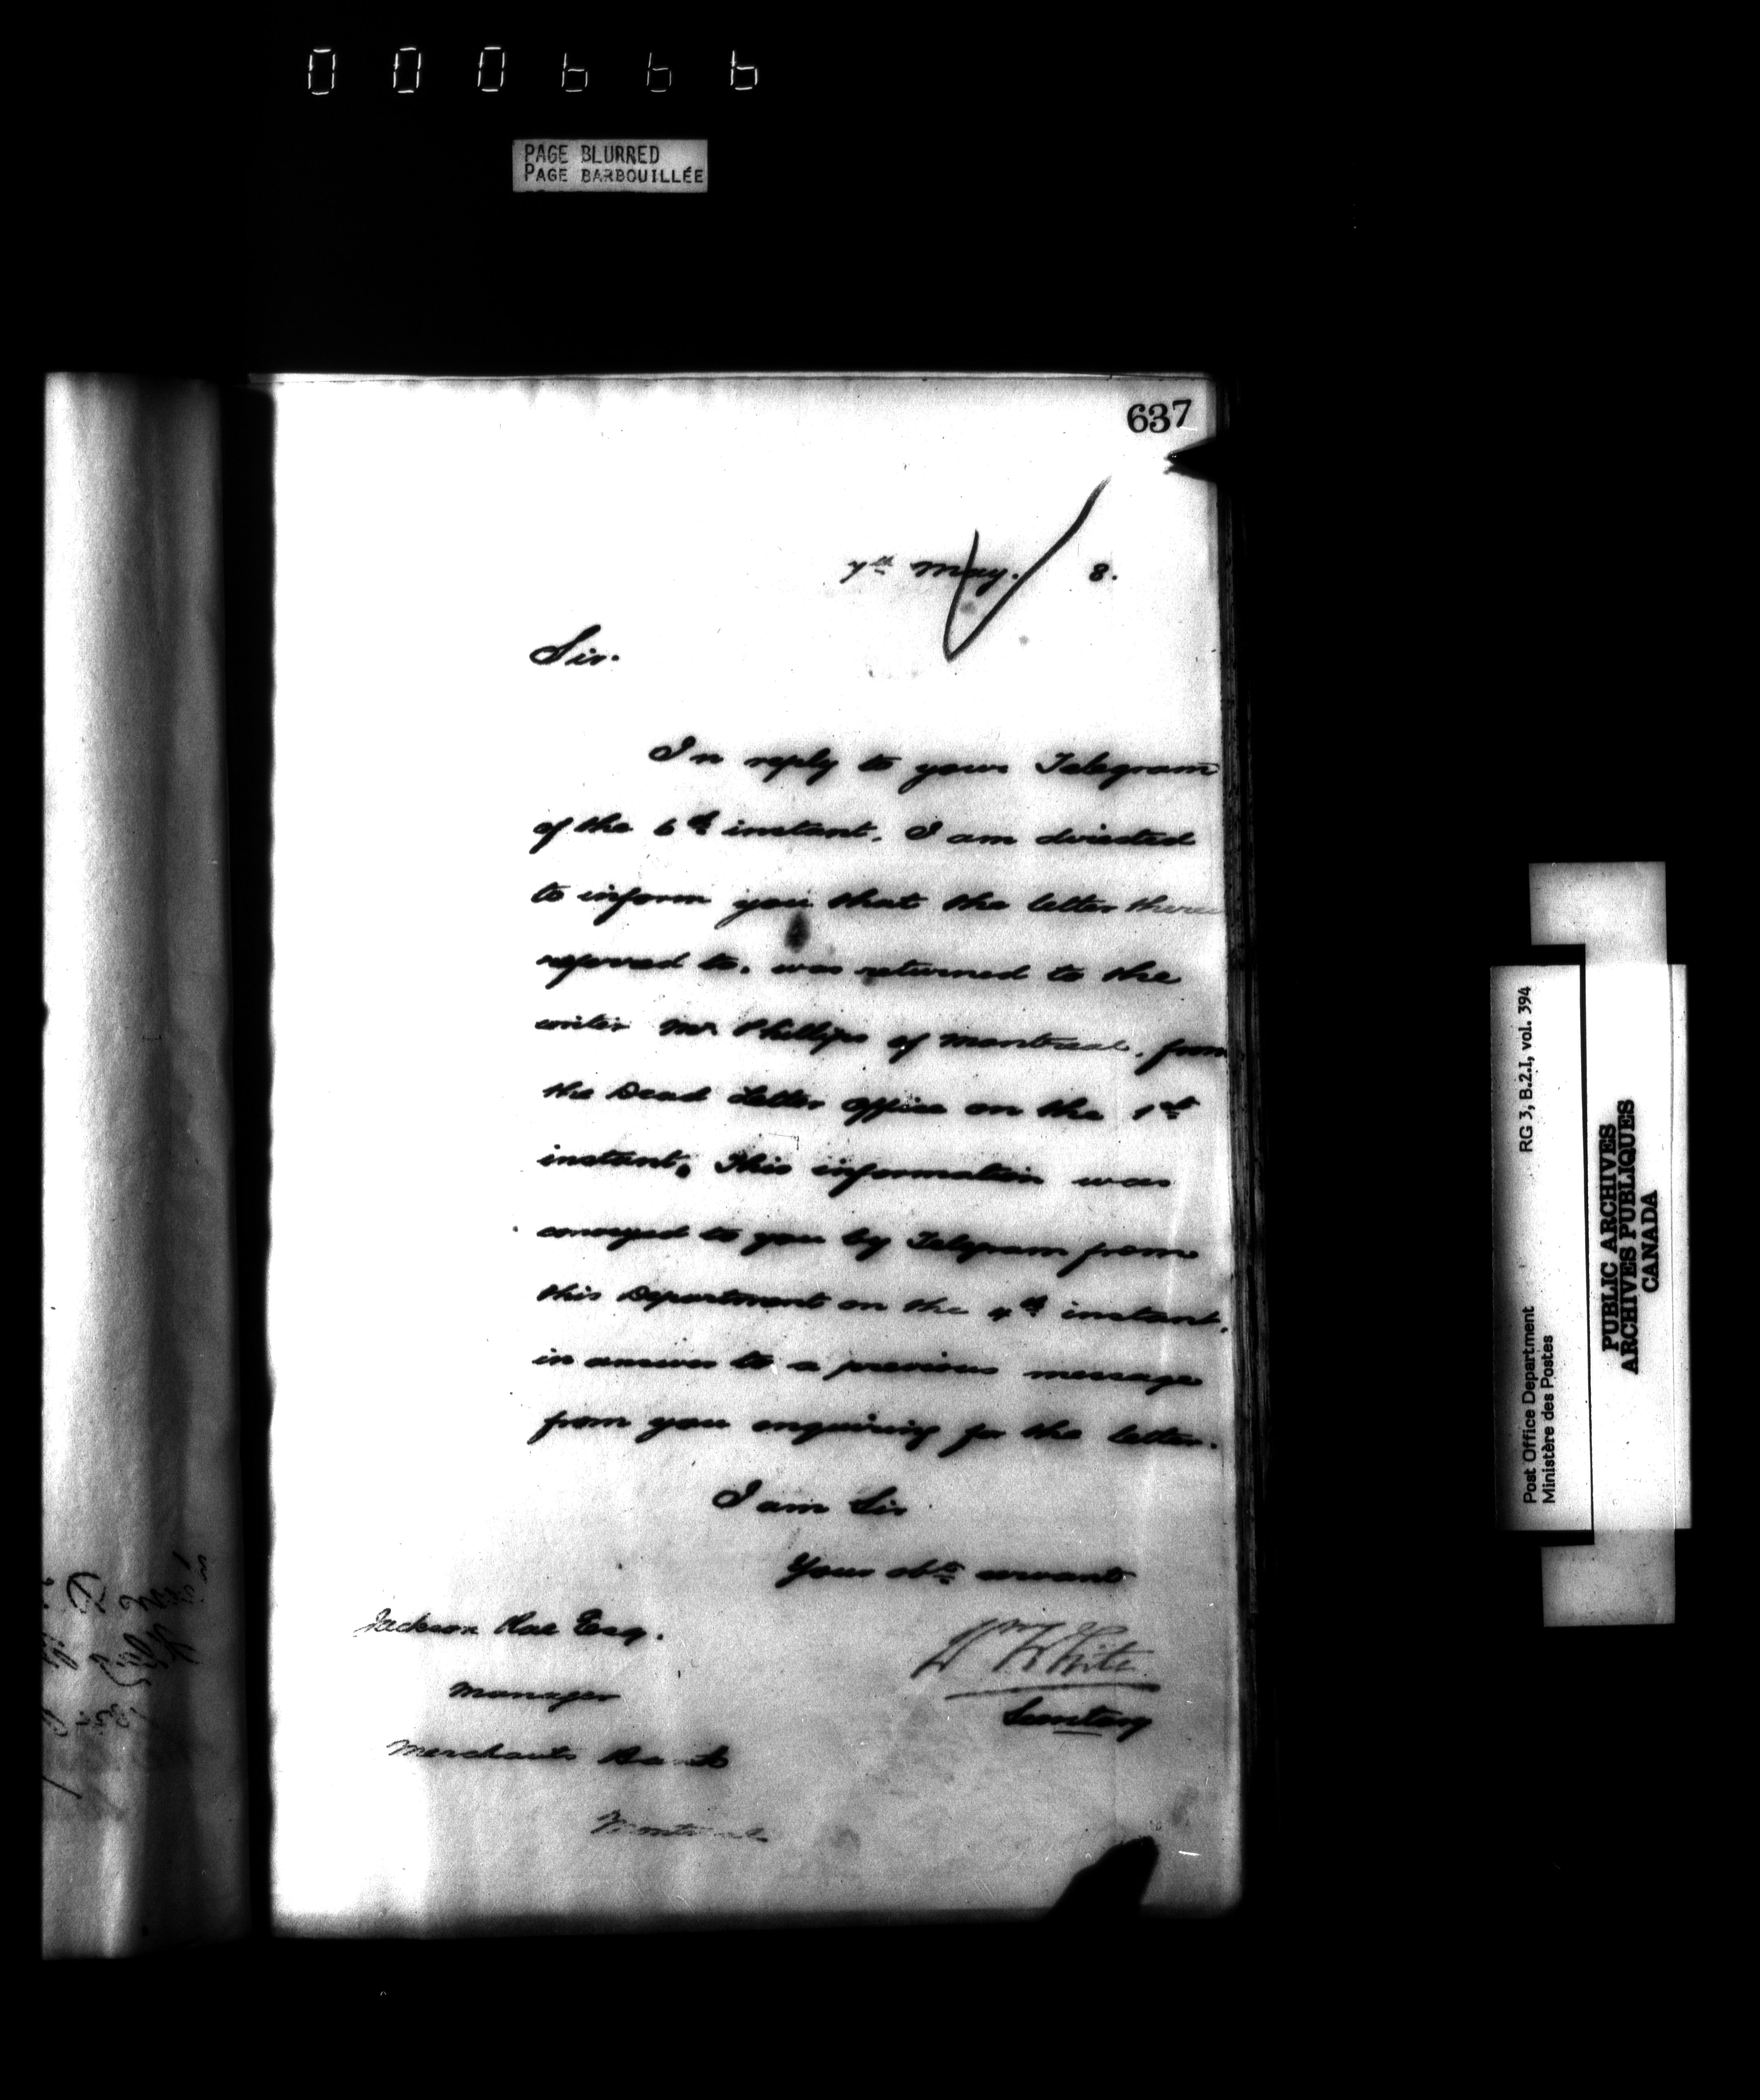 000666
PAGE BLURRED
PAGE BARBOUILLÉE
637
7th May. 8.
Sir.
In reply to your Telegram
of the 6th instant. I am directed
to inform you that the letter therein
referred to. was returned to the
writer Mr Phillips of Montreal. from
the Dead Letter Office on the 1st
instant. This information was
conveyed to you by Telegram from
this Department on the 4th instant.
in answer to a previous message
from you enquiring for the letter.
I am Sir
Your obt servant
Wm White
Secretary
Jackson Rae Esq.
Manager
Merchants Bank
Montreal
Post Office Department RG 3, B.2.I, vol. 394
Ministère des Postes
PUBLIC ARCHIVES
ARCHIVES PUBLIQUES
CANADA